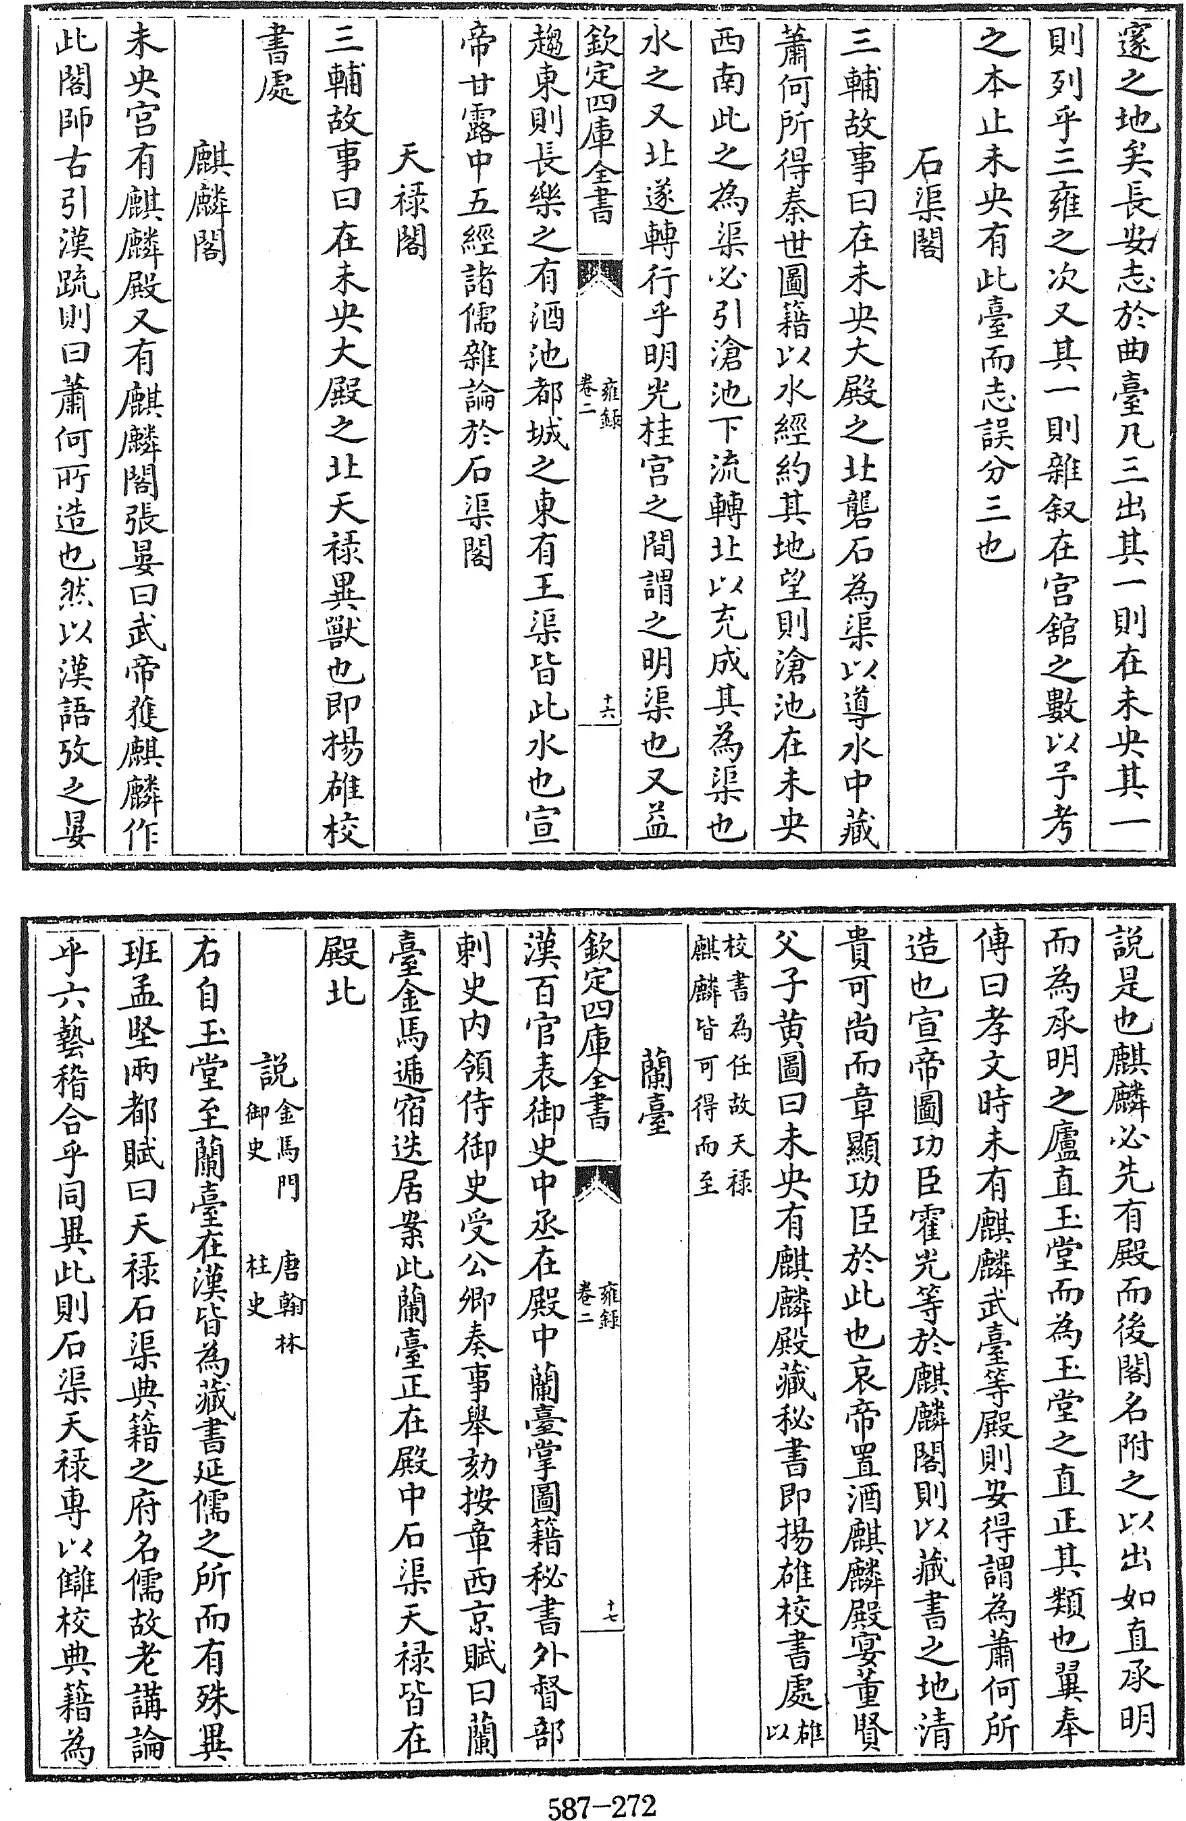 邃之地矣長安志於曲臺凡三出其一則在未央其一
則列乎三雍之次又其一則雜叙在宫舘之數以予考
之本止未央有此臺而志誤分三也
石渠閣
三輔故事曰在未央大殿之北礱石為渠以導水中藏
蕭何所得秦世圖籍以水經約其地望則滄池在未央
西南此之為渠必引滄池下流轉北以充成其為渠也
水之又北遂轉行乎明光桂宫之間謂之明渠也又益
欽定四庫全書
雍録
卷二
十六
趨東則長樂之有酒池都城之東有王渠皆此水也宣
帝甘露中五經諸儒雜論於石渠閣
天禄閣
三輔故事曰在未央大殿之北天禄異獸也即揚雄校
書處
麒麟閣
未央宫有麒麟殿又有麒麟閣張晏曰武帝獲麒麟作
此閣師古引漢疏則曰蕭何所造也然以漢語攷之晏
説是也麒麟必先有殿而後閣名附之以出如直承明
而為承明之廬直玉堂而為玉堂之直正其類也翼奉
傳曰孝文時未有麒麟武臺等殿則安得謂為蕭何所
造也宣帝圖功臣霍光等於麒麟閣則以藏書之地清
貴可尚而章顯功臣於此也哀帝置酒麒麟殿宴董賢
父子黄圖曰未央有麒麟殿藏秘書即揚雄校書處雄以
校書為任故天禄
麒麟皆可得而至
蘭臺
欽定四庫全書
雍録
卷二
十七
漢百官表御史中丞在殿中蘭臺掌圖籍秘書外督部
刺史内領侍御史受公卿奏事舉劾按章西京賦曰蘭
臺金馬遞宿迭居案此蘭臺正在殿中石渠天禄皆在
殿北
説金馬門 唐翰林
御史 柱史
右自玉堂至蘭臺在漢皆為藏書延儒之所而有殊異
班孟堅兩都賦曰天禄石渠典籍之府名儒故老講論
乎六藝稽合乎同異此則石渠天禄專以讎校典籍為
587-272